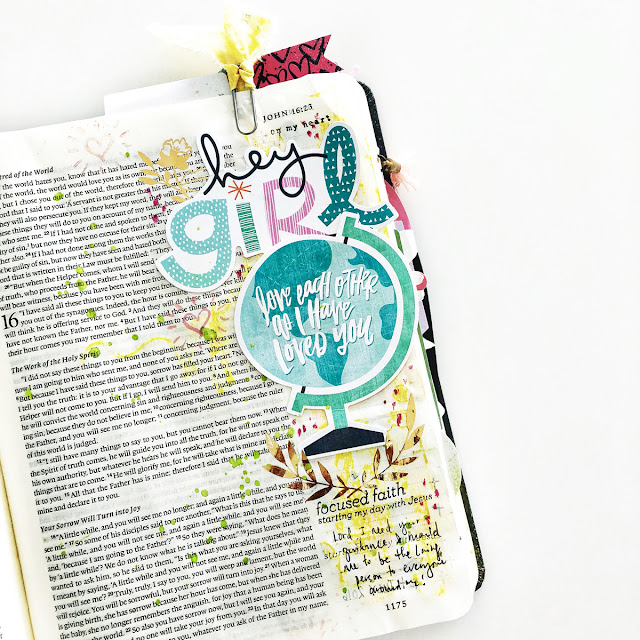 JOHN 16:23
on my heart
hey
giRl
love each other
as I have
loved you
red of the World
the world hates you, know that it has hated me
the world, the world would love you as its own
but I chose you out of the world, therefore the world
I said to you: 'A servant is not greater than his
will also persecute you. If they kept my word, they will
these things they will do to you on account of my name
who sent me. 22 If I had not come and spoken to them
of sin, but now they have no excuse for their sin.
her also. 24 If I had not done among them the works
be guilty of sin, but now they have seen and hated both
word that is written in their Law must be fulfilled:
26 "But when the Helper comes, whom I will send
of truth, who proceeds from the Father, he will bear
will bear witness, because you have been with me from
16 "I have said all these things to you to keep you from
you out of the synagogues. Indeed, the hour is coming
will think he is offering service to God. 3 And they will do these things
have not known the Father, nor me. 4 But I have said these things to you,
their hour comes you may remember that I told them to you.
The Work of the Holy Spirit
"I did not say these things to you from the beginning, because I was with
now I am going to him who sent me, and none of you asks me, 'Where are
6 But because I have said these things to you, sorrow has filled your heart.
I tell you the truth: it is to your advantage that I go away, for if I do not go
Helper will not come to you. But if I go, I will send him to you. 8 And when
he will convict the world concerning sin and righteousness and judgment:
ing sin, because they do not believe in me; 10 concerning righteousness, because I go
the Father, and you will see me no longer; 11 concerning judgment, because the ruler
of this world is judged.
12 "I still have many things to say to you, but you cannot bear them now. 13 When
the Spirit of truth comes, he will guide you into all the truth, for he will not speak on
his own authority, but whatever he hears he will speak, and he will declare to you the
things that are to come. 14 He will glorify me, for he will take what is mine and
declare it to you. 15 All that the Father has is mine; therefore I said that he will take
mine and declare it to you."
Your Sorrow Will Turn into Joy
16 "A little while, and you will see me no longer; and again a little while, and you will
see me." 17 So some of his disciples said to one another, "What is this that he says to us,
'A little while, and you will not see me, and again a little while, and you will see me';
and, 'because I am going to the Father'?" 18 So they were saying, "What does he mean
by 'a little while'? We do not know what he is talking about." 19 Jesus knew that they
wanted to ask him, so he said to them, "Is this what you are asking yourselves, what
I meant by saying, 'A little while and you will not see me, and again a little while and
you will see me'? 20 Truly, truly, I say to you, you will weep and lament, but the world
will rejoice. You will be sorrowful, but your sorrow will turn into joy. 21 When a woman
is giving birth, she has sorrow because her hour has come, but when she has delivered
the baby, she no longer remembers the anguish, for joy that a human being has been
born into the world. 22 So also you have sorrow now, but I will see you again, and your
hearts will rejoice, and no one will take your joy from you. 23 In that day you will ask
nothing of me. Truly, truly, I say to you, whatever you ask of the Father in my name,
focused faith
starting my day with Jesus
Lord I need your
guidance & remind
me to be the loving
person to everyone
around me.
1175